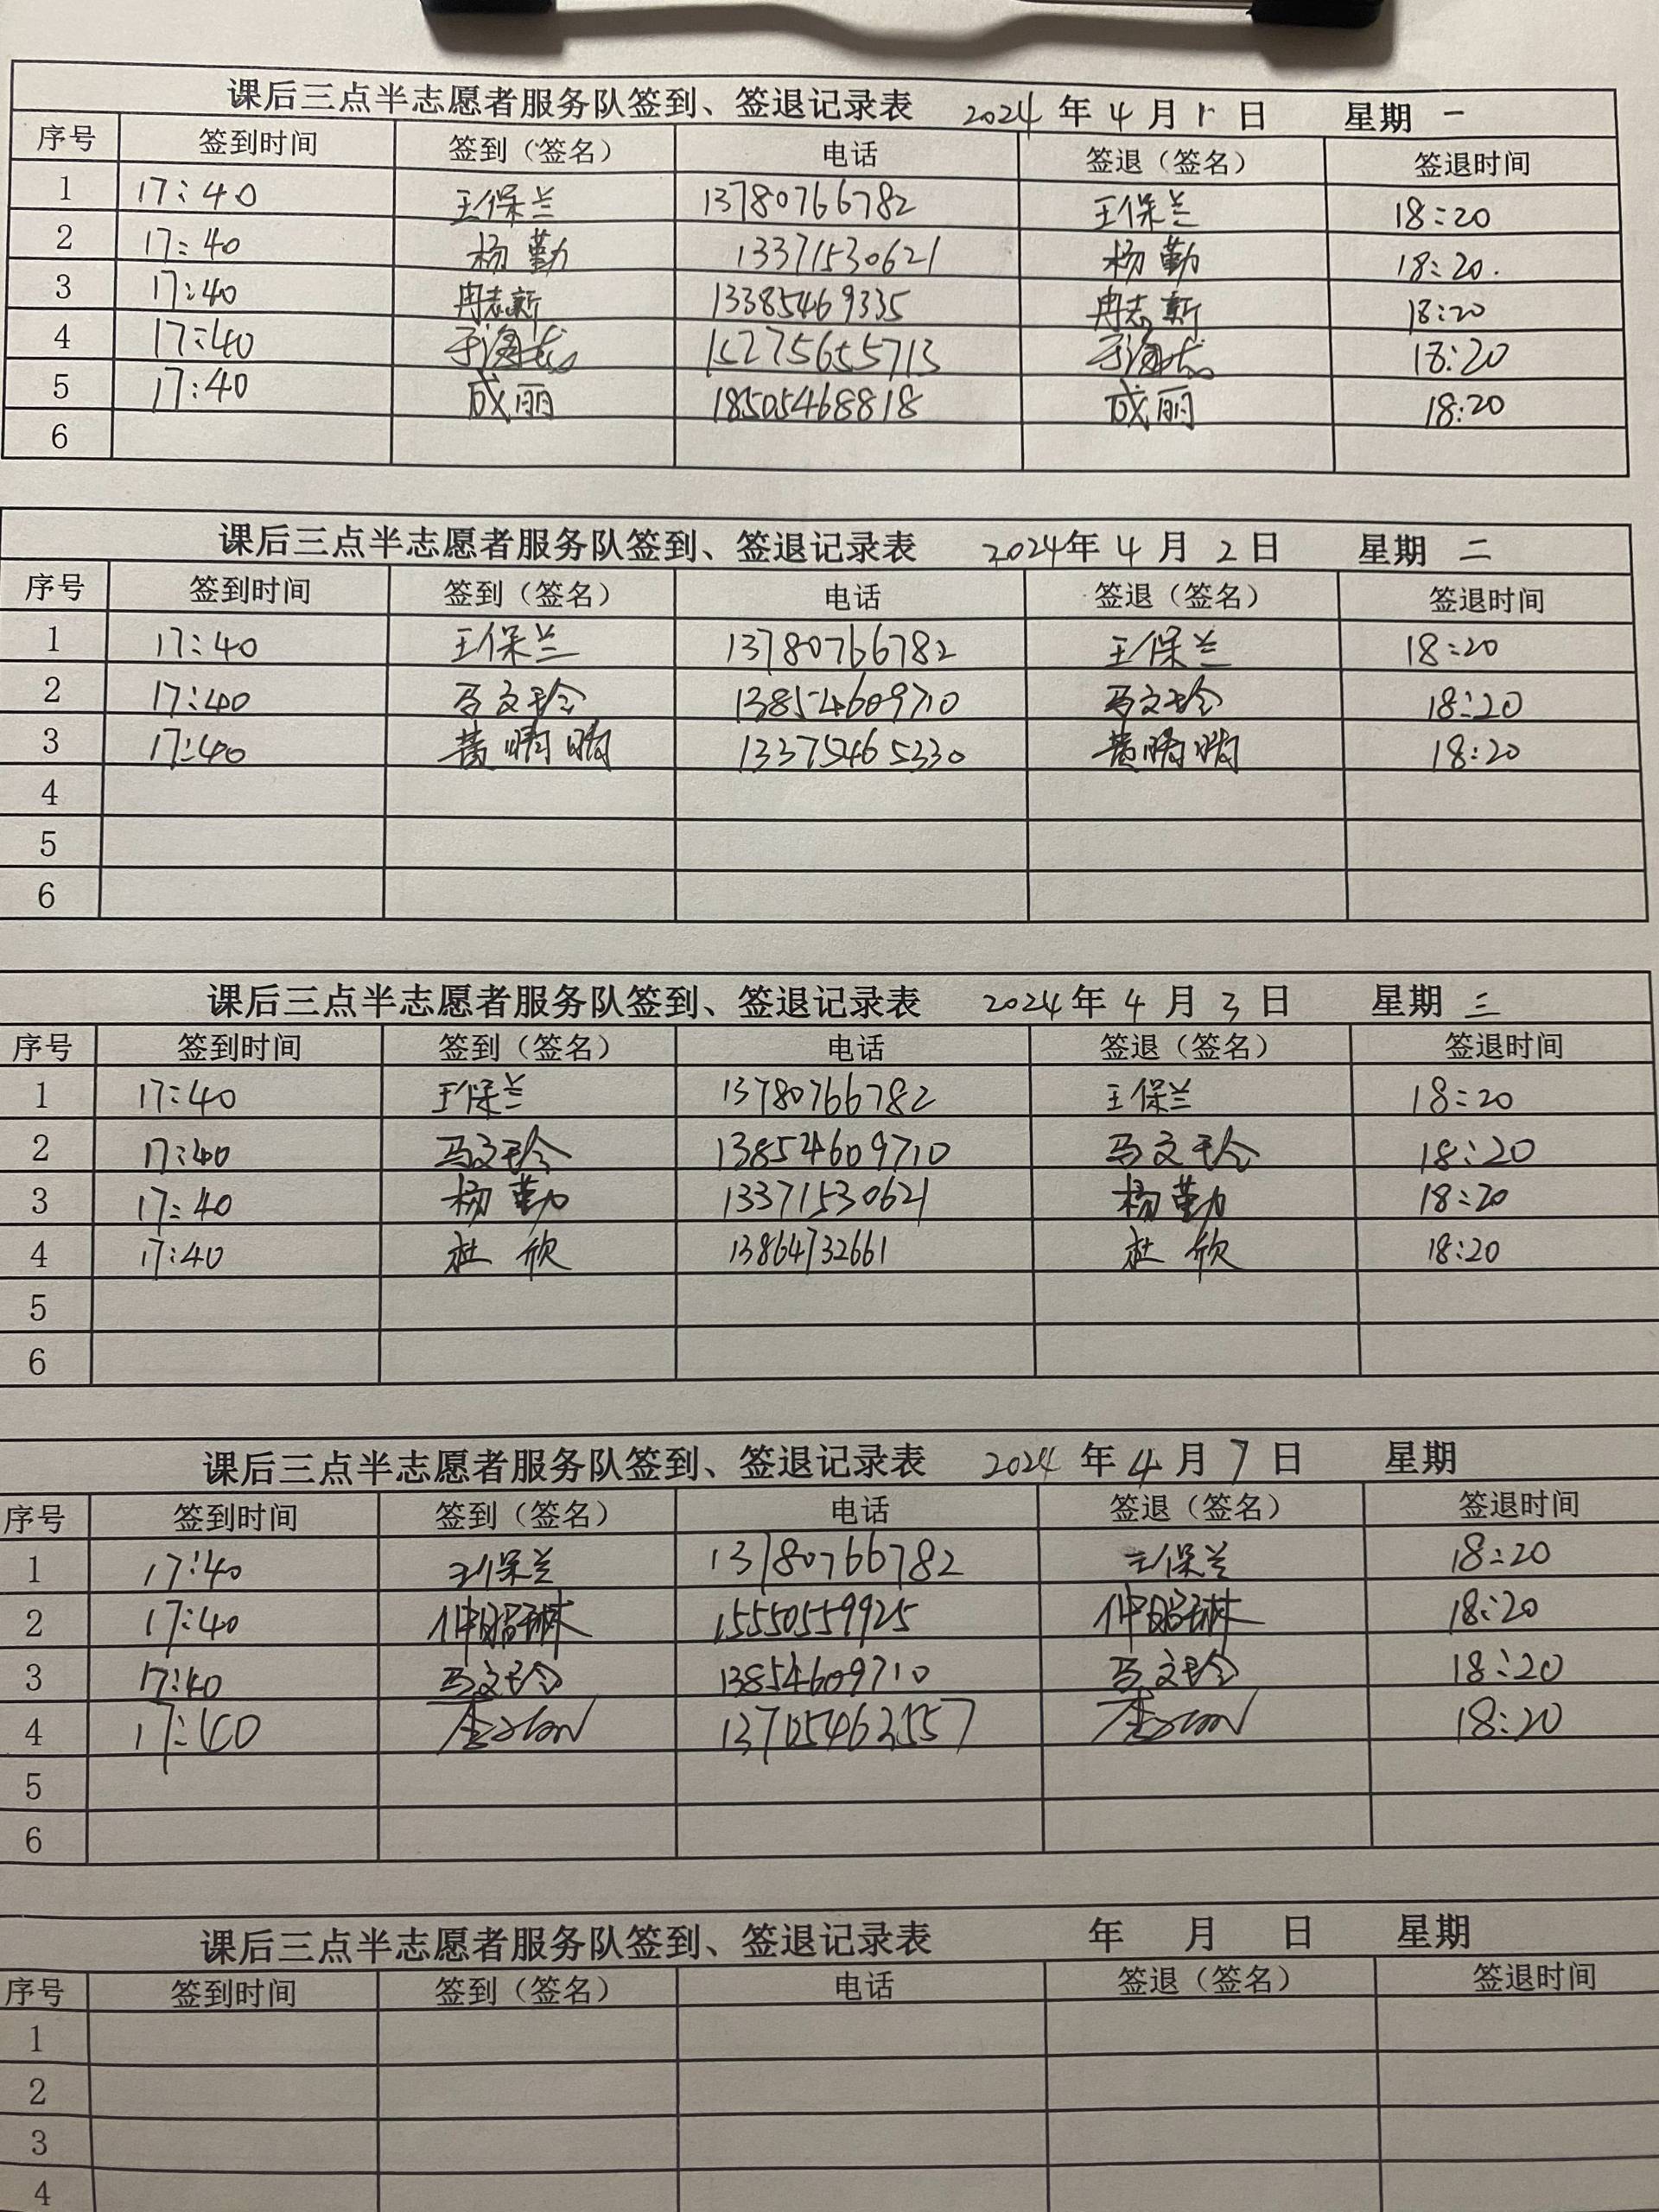 课后三点半志愿者服务队签到、签退记录表 2024年4月1日 星期一
序号 签到时间 签到（签名） 电话 签退（签名） 签退时间
1 17:40 王保兰 13780766782 王保兰 18:20
2 17:40 杨勤 13371530621 杨勤 18:20.
3 17:40 冉志新 13385469335 冉志新 18:20
4 17:40 15275655713 18:20
5 17:40 成丽 18505468818 成丽 18:20
6
课后三点半志愿者服务队签到、签退记录表 2024年4月2日 星期二
序号 签到时间 签到（签名） 电话 签退（签名） 签退时间
1 17:40 王保兰 13780766782 王保兰 18:20
2 17:40 马文玲 13854609710 马文玲 18:20
3 17:40 13375465330 18:20
4
5
6
课后三点半志愿者服务队签到、签退记录表 2024年4月3日 星期三
序号 签到时间 签到（签名） 电话 签退（签名） 签退时间
1 17:40 王保兰 13780766782 王保兰 18:20
2 17:40 马文玲 13854609710 马文玲 18:20
3 17:40 杨勤 13371530621 杨勤 18:20
4 17:40 杜欣 13864732661 杜欣 18:20
5
6
课后三点半志愿者服务队签到、签退记录表 2024年4月7日 星期
序号 签到时间 签到（签名） 电话 签退（签名） 签退时间
1 17:40 王保兰 13780766782 王保兰 18:20
2 17:40 15550559925 18:20
3 17:40 马文玲 13854609710 马文玲 18:20
4 17:40 18:20
5
6
课后三点半志愿者服务队签到、签退记录表 年 月 日 星期
序号 签到时间 签到（签名） 电话 签退（签名） 签退时间
1
2
3
4